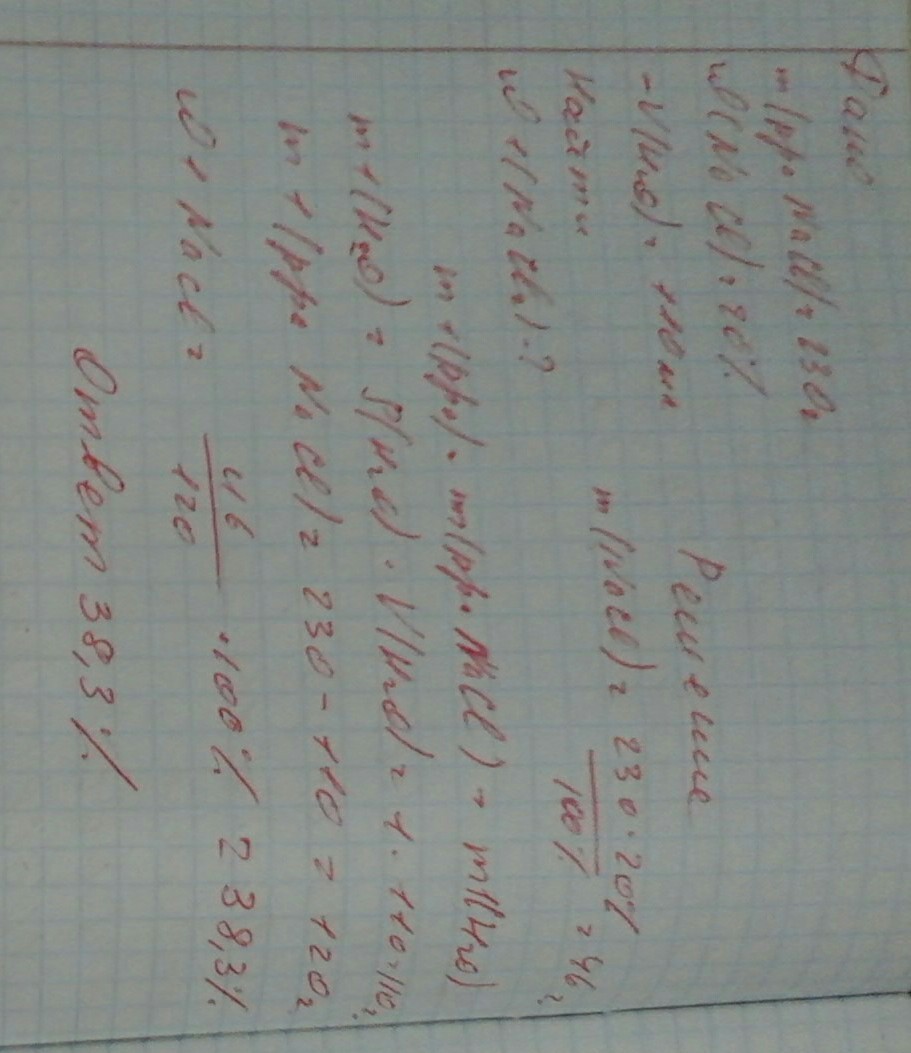 Дано
m(р-ра NaCl) = 230г
ω(NaCl) = 20%
-V(H₂O) = 110 мл
Найти
ω1(NaCl) - ?
Решение
m(NaCl) = 230·20% / 100% = 46г
m1(р-ра) = m(р-ра NaCl) - m1(H₂O)
m1(H₂O) = ρ(H₂O) · V(H₂O) = 1 · 110 = 110г
m1(р-ра NaCl) = 230 - 110 = 120г
ω1 NaCl = 46 / 120 · 100% = 38,3%
Ответ 38,3%